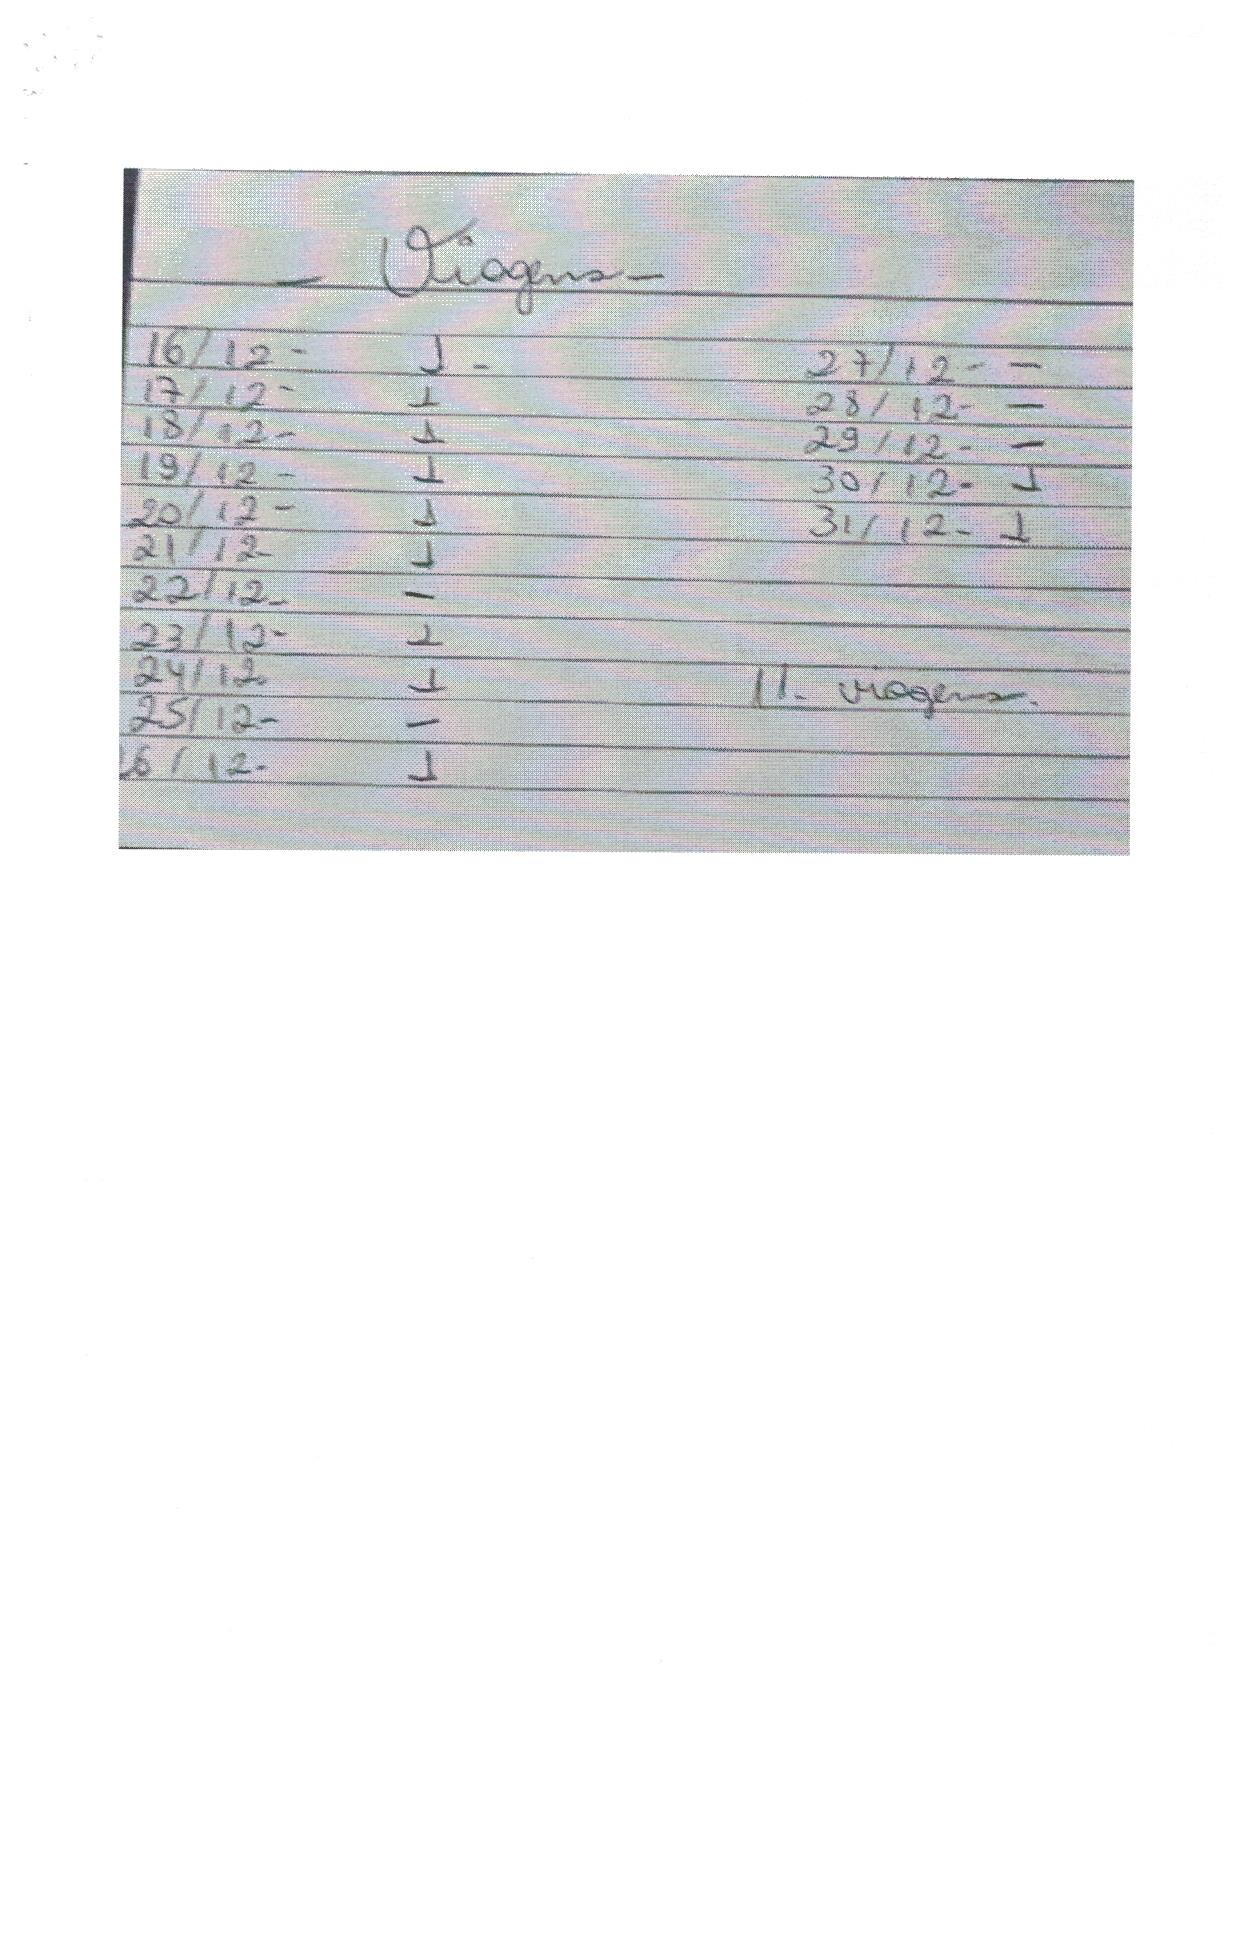 - Viagens -
16/12 - 1 -
17/12 - 1
18/12 - 1
19/12 - 1
20/12 - 1
21/12 - 1
22/12 - -
23/12 - 1
24/12 1
25/12 - -
26/12 - 1
27/12 - -
28/12 - -
29/12 - -
30/12 - 1
31/12 - 1
11 - viagens.